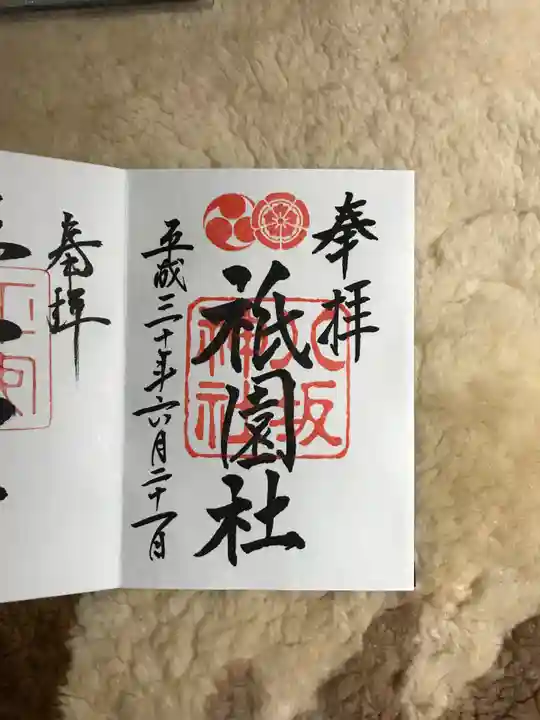 奉拝
八坂
神社
祇園社
平成三十年六月二十一日
奉拝